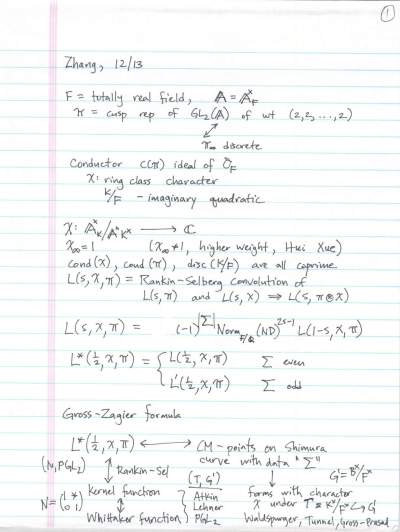 ①
Zhang, 12/13
F = totally real field, 𝔸 = 𝔸_F^×
π = cusp rep of GL₂(𝔸) of wt (2,2,...,2)
π_∞ discrete
Conductor c(π) ideal of Ô_F
χ: ring class character
K/F - imaginary quadratic
χ: 𝔸_K^×/𝔸^× K^× → ℂ
χ_∞ = 1 (χ_∞ ≠ 1, higher weight, Hui Xue)
cond(χ), cond(π), disc(K/F) are all coprime
L(s,χ,π) = Rankin-Selberg convolution of
L(s,π) and L(s,χ) ⇒ L(s, π⊗χ)
L(s,χ,π) = (-1)^|Σ| Norm_{F/Q} (ND)^{2s-1} L(1-s,χ,π)
L*(½,χ,π) = { L(½,χ,π) Σ even
L'(½,χ,π) Σ odd
Gross-Zagier formula
L*(½,χ,π) ↔ CM-points on Shimura
curve with data "Σ"
(N, PGL₂) Rankin-Sel (T, G') G' = B^×/F^×
Kernel function Atkin forms with character
N = (1 * / 0 1) Lehner χ under T = K^×/F^× ↪ G'
Whittaker function PGL₂ Waldspurger, Tunnel, Gross-Prasad